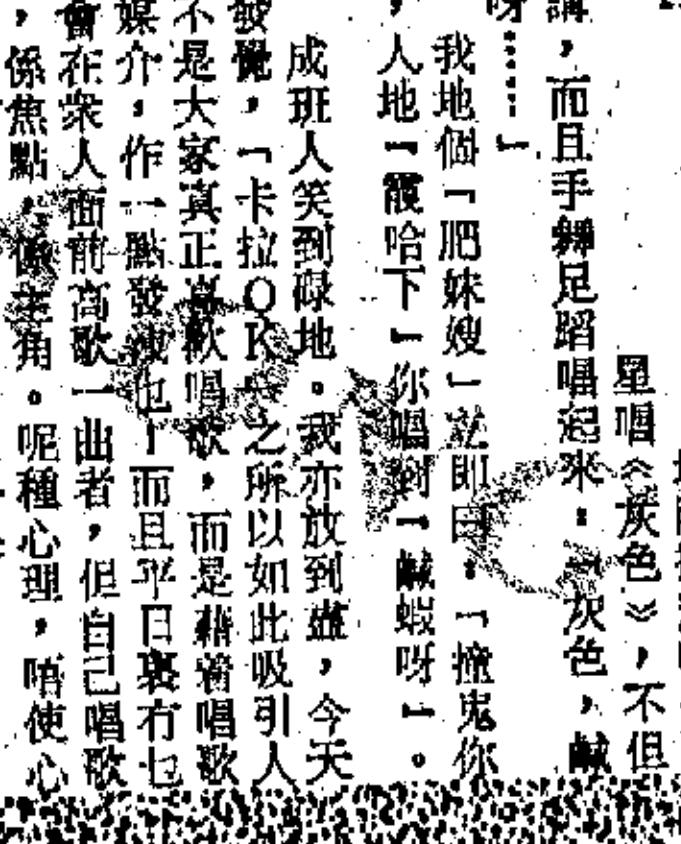 星唱《灰色》，不但
講，而且手舞足蹈唱起來：「灰色，鹹
呀……」
我地個「肥妹嫂」立即曰：「撞鬼你
，人地「霞哈下」你唱到「鹹蝦呀」。
成班人笑到碌地。我亦放到盡，今天
發覺，「卡拉OK」之所以如此吸引人
不是大家真正喜歡唱歌，而是藉着唱歌
媒介，作一點發洩也！而且平日裏冇乜
會在衆人面前高歌一曲者，但自己唱歌
，係焦點，係主角。呢種心理，唔使心